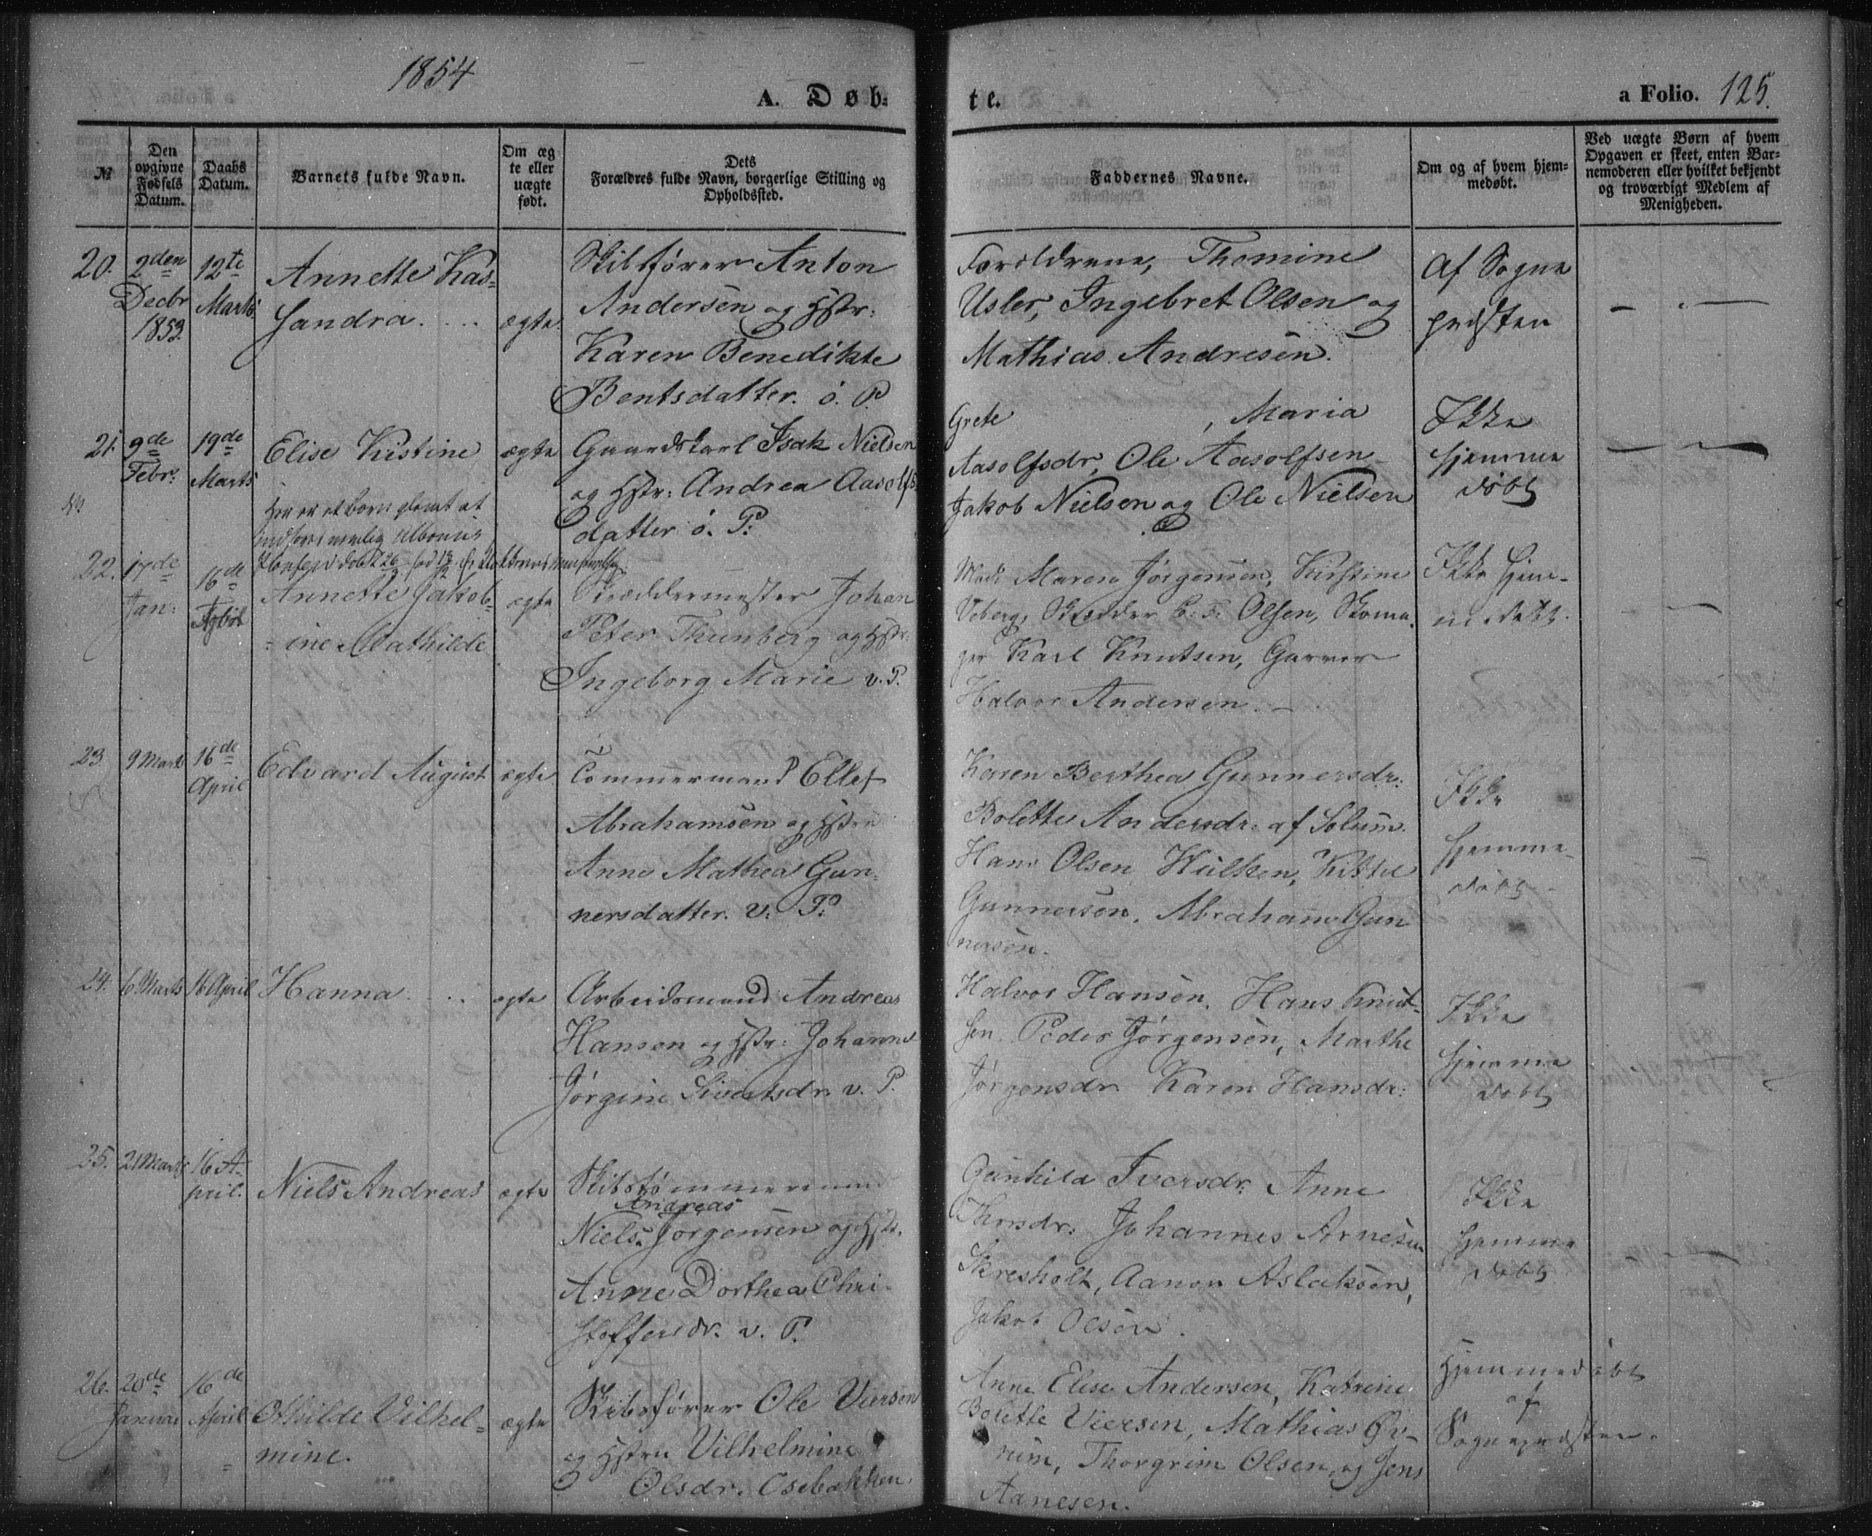 1854
A. Døb-
te.
a Folio. 125.
№
Den opgivne Fødsels Datum.
Daabs Datum.
Barnets fulde Navn.
Om ægte eller uægte født.
Dets Forældres fulde Navn, borgerlige Stilling og Opholdssted.
Faddernes Navne.
Om og af hvem hjemmedøbt.
Ved uægte Børn af hvem Opgaven er skeet, enten Barnemoderen eller hvilket bekjendt og troværdigt Medlem af Menigheden.
20. 2den Decbr 1853. 12te Marts
Annette Kas-
sandra.
ægte.
Skibsfører Anton
Andersen og Hstr:
Karen Benedikte
Bentsdatter. ö. P.
Forældrene, Thomine
Usler, Ingebret Olsen og
Mathias Andresen.
Af Sogne
præsten
21. 9de Febr. 19de Marts
Elise Kistine
ægte
Gaardskarl Isak Nielsen
og Hstr: Andrea Aasolfs
datter ö. P.
Grete , Maria
Aasolfsdr, Ole Aasolfsen
Jakob Nielsen og Ole Nielsen
Ikke
hjemme
døbt
Her er et Barn glemt at
indføres nemlig Albonius
22. 17de Jan: 16de April
Annette Jakob-
ine Mathilde
ægte
Skræddermester Johan
Peter Thunberg og Hstr:
Ingeborg Marie v. P.
Mad: Maren Jørgensen, Kirstine
Veberg, Skrædder C. F. Olsen, Skoma-
ger Karl Knutsen, Garver
Halvor Andersen.
Ikke hjem-
medøbt.
23. 9 Marts 16de April
Edvard August
ægte
Tömmermand Ellef
Abrahamsen og Hstru
Anne Mathea Gun-
nersdatter. v. P.
Karen Berthea Gunnersdr:
Bolette Andersdr. af Solum.
Hans Olsen Hulken, Kittel
Gunnersen, Abraham Gun
nersen.
Ikke
hjemme-
døbt
24. 6 Marts 16 April
Hanna.
ægte
Arbeidsmand Andreas
Hansen og Hstr: Johanne
Jørgine Sivertsdr. v. P.
Halvor Hansen. Hans Knut-
sen. Peder Jørgensen, Marthe
Jørgensdr Karen Hansdr:
Ikke
hjemme
døbt
25. 21 Marts 16 A-
pril.
Niels Andreas
ægte
Skibstømmermand
Andreas
Niels Jørgensen og Hstr.
Anne Dorthea Chri-
stoffersdr. v. P.
Gunhild Iversdr. Anne
Thorsdr. Johannes Arnesen
Skresholt, Aanon Aslaksen,
Jakob Olsen.
Ikke
hjemme
døbt
26. 20de Januar 16de April
Othilde Vilhel-
mine.
ægte
Skibsfører Ole Viersen
og Hstru Vilhelmine
Olsdr. Osebakken
Anne Elise Andersen, Katrine
Bolette Viersen, Mathias Øv-
rum, Thorgrim Olsen, og Jens
Aanesen.
Hjemmedøbt
af
Sognepræsten.